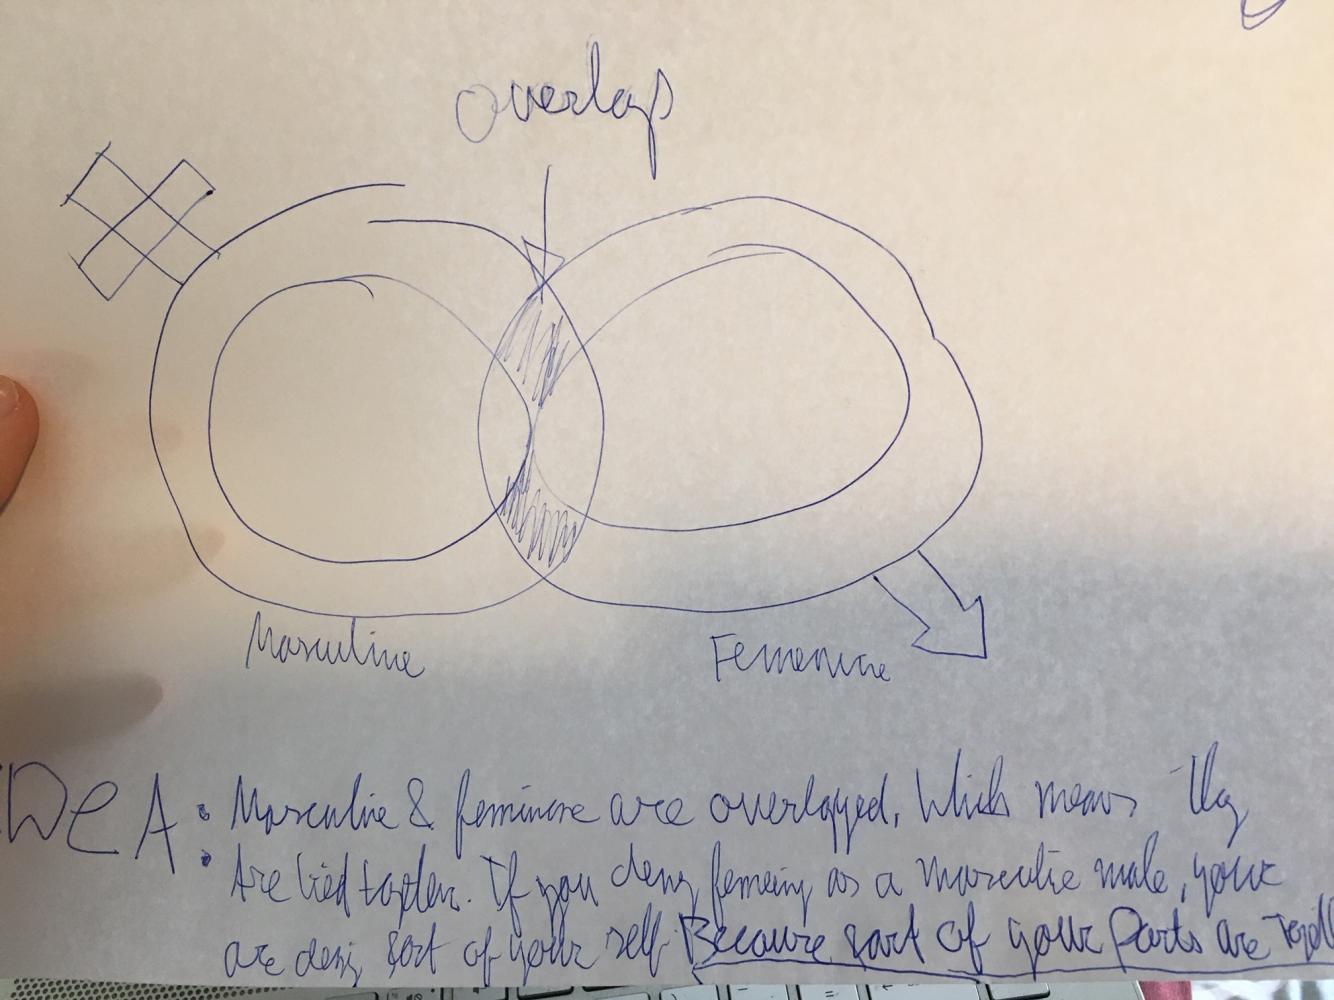 overlap
Masculine
Femenine
IDEA: Masculine & feminine are overlayed, Which means they
Are tied togher. If you deny as a masculie male, your
are deny sort of your self. Because sort of your Parts are